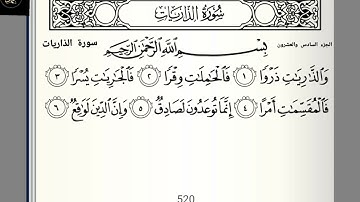 سُورَةُ الذَّارِيَاتِ
الجزء السادس والعشرون
سورة الذاريات
بِسْمِ اللَّهِ الرَّحْمَٰنِ الرَّحِيمِ
وَالذَّارِيَاتِ ذَرْوًا ١ فَالْحَامِلَاتِ وِقْرًا ٢ فَالْجَارِيَاتِ يُسْرًا ٣
فَالْمُقَسِّمَاتِ أَمْرًا ٤ إِنَّمَا تُوعَدُونَ لَصَادِقٌ ٥ وَإِنَّ الدِّينَ لَوَاقِعٌ ٦
520